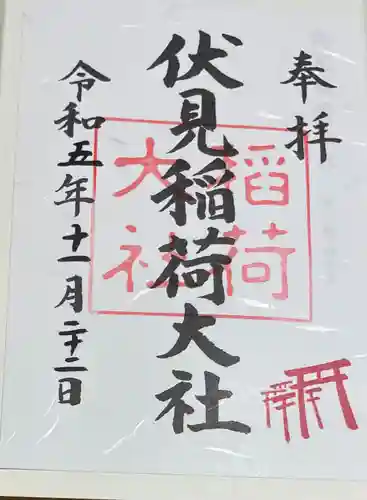 奉拝
伏見稲荷大社
稲荷大社
令和五年十一月二十二日